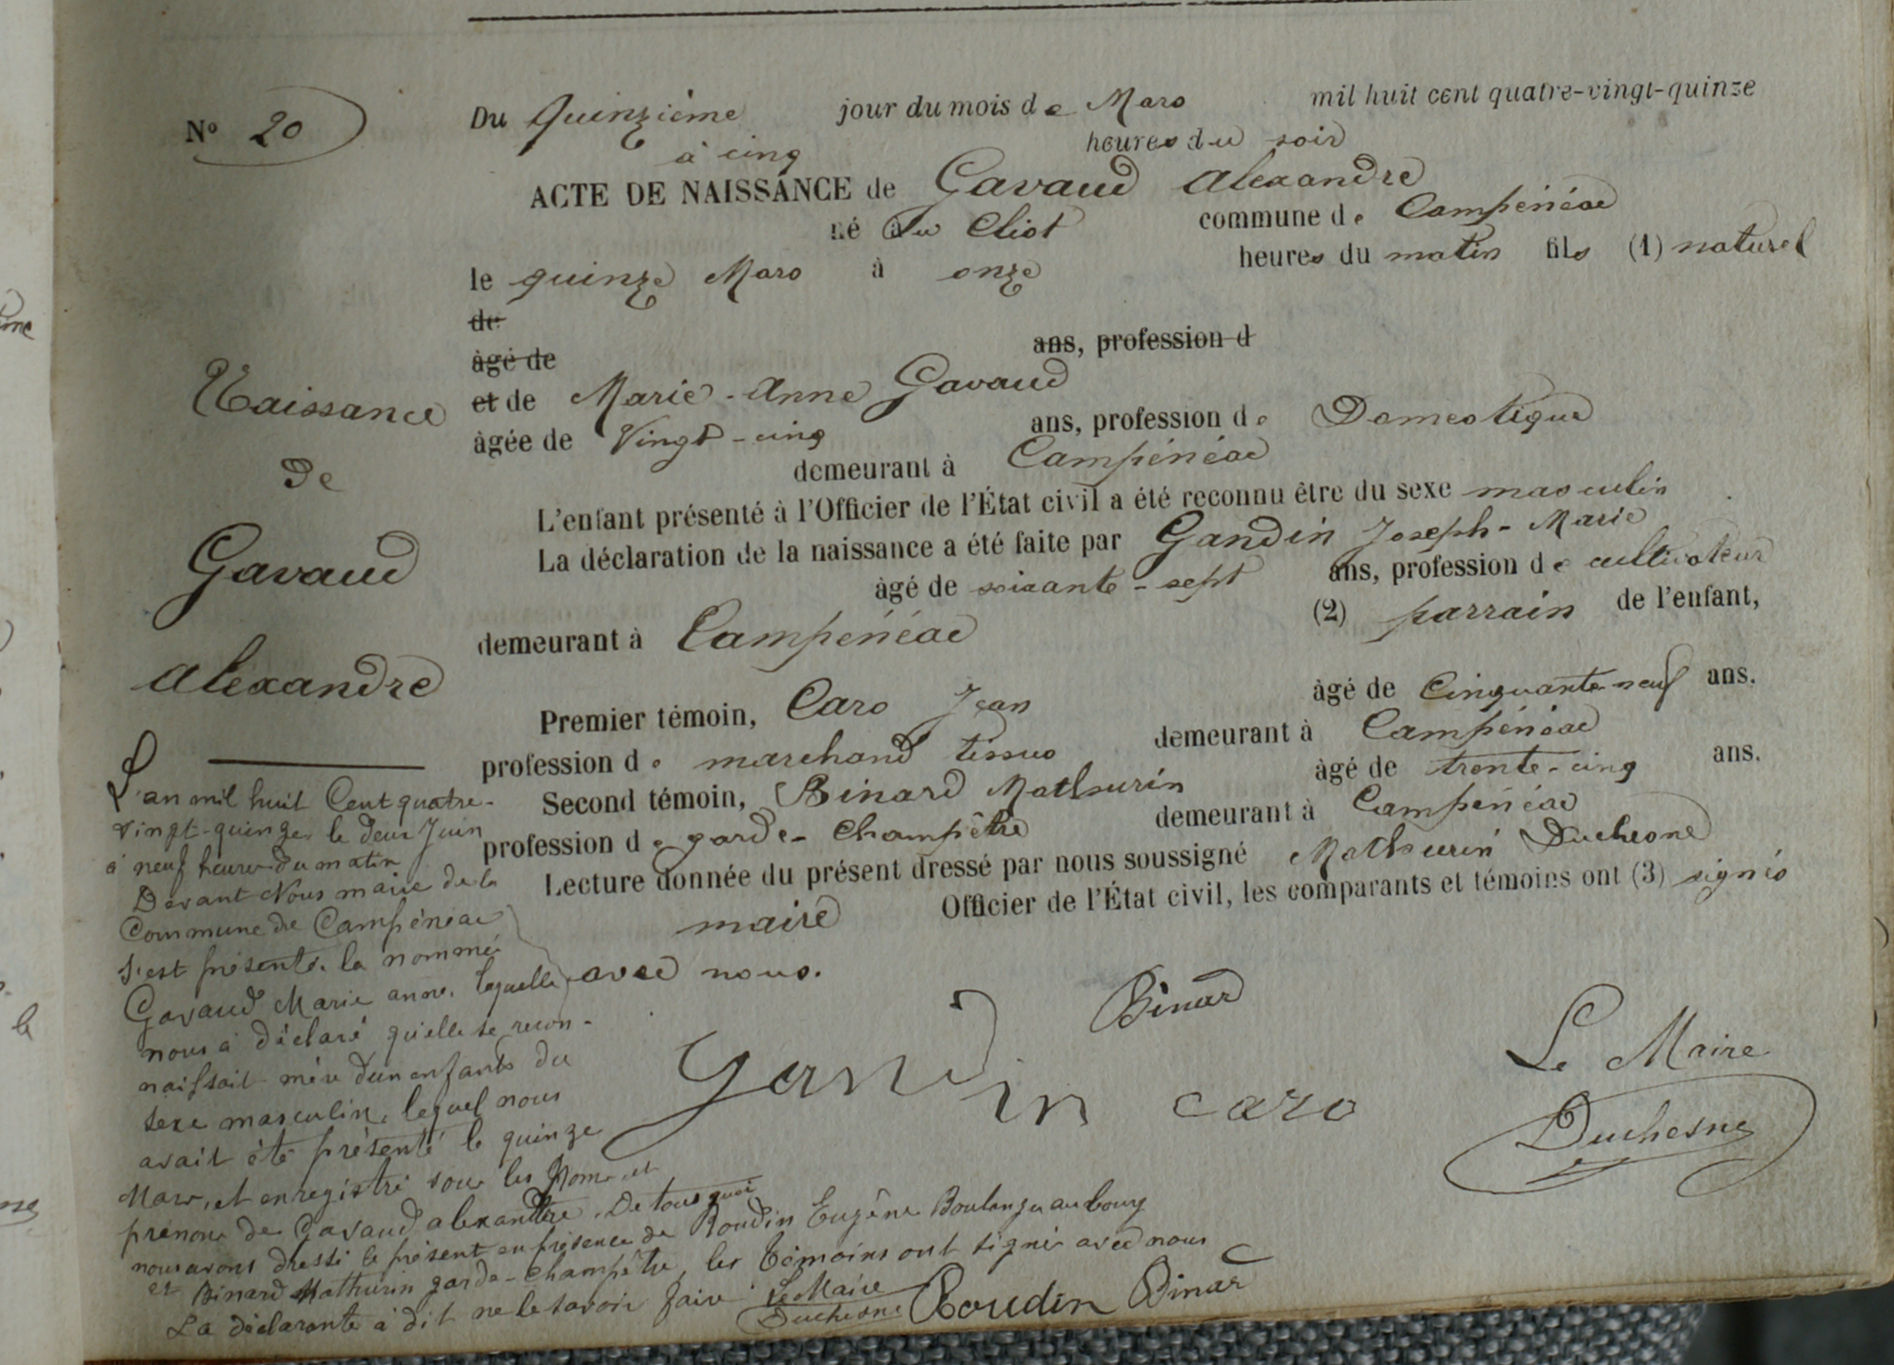 N° 20
Du Quinzième jour du mois de Mars mil huit cent quatre-vingt-quinze
à cinq heures du soir
ACTE DE NAISSANCE de Gavaud Alexandre
né au Cliot commune de Campénéac
le quinze Mars à onze heures du matin fils (1) naturel
de
âgé de ans, profession d
et de Marie-Anne Gavaud
âgée de Vingt-cinq ans, profession de Domestique
demeurant à Campénéac
L'enfant présenté à l'Officier de l'État civil a été reconnu être du sexe masculin
La déclaration de la naissance a été faite par Gandin Joseph-Marie
âgé de soixante-sept ans, profession de cultivateur
demeurant à Campénéac (2) parrain de l'enfant,
Premier témoin, Caro Jean âgé de Cinquante-neuf ans.
profession de marchand tissus demeurant à Campénéac
Second témoin, Binard Mathurin âgé de trente-cinq ans.
profession de garde-Champêtre demeurant à Campénéac
Lecture donnée du présent dressé par nous soussigné Mathurin Duchesne
maire Officier de l'État civil, les comparants et témoins ont (3) signés
avec nous.
Binard
Gandin
caro
Le Maire
Duchesne
Naissance
de
Gavaud
Alexandre
L'an mil huit Cent quatre-
vingt-quinze, le deux Juin
à neuf heures du matin
Devant Nous maire de la
Commune de Campénéac
s'est présentée la nommée
Gavaud Marie anne, laquelle
nous a déclaré qu'elle se recon-
naissait mère d'un enfant du
sexe masculin, lequel nous
avait été présenté le quinze
Mars, et enregistré sous les Nom et
prénom de Gavaud alexandre. De tous quoi
nous avons dressé le présent en présence de Roudin Eugène Boulanger au bourg
et Binard Mathurin garde-champêtre, les témoins ont signé avec nous
La déclarante a dit ne le savoir faire. Le Maire
Duchesne
Roudin
Binard